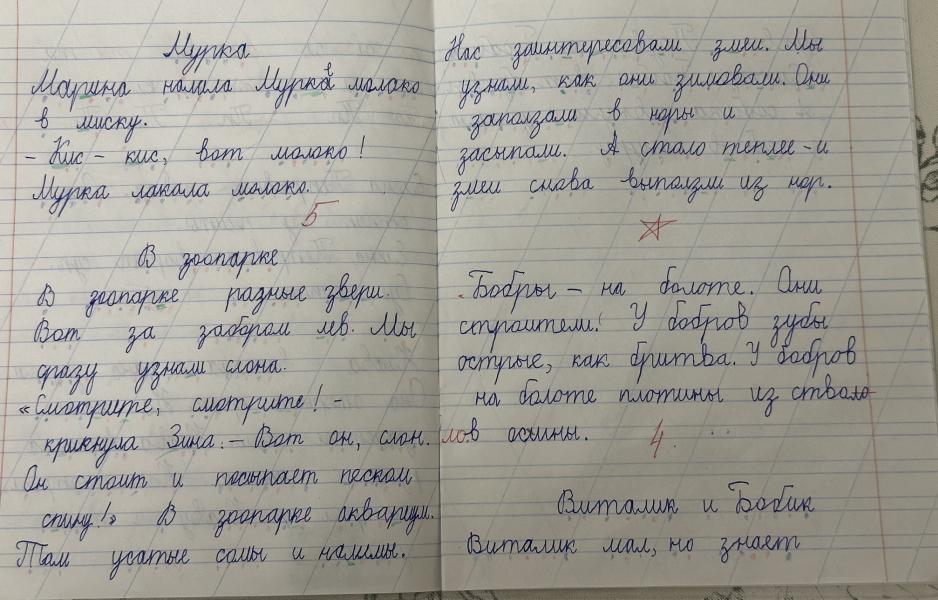 Мурка
Марина налала Мурке молоко
в миску.
- Кис - кис, вот молоко!
Мурка лакала молоко.
5
В зоопарке
В зоопарке разные звери.
Вот за забором лев. Мы
сразу узнали слона.
«Смотрите, смотрите! -
крикнула Зина. - Вот он, слон.
Он стоит и посыпает песком
спину!» В зоопарке аквариум.
Там усатые сомы и налимы.
Нас заинтересовали змеи. Мы
узнали, как они зимовали. Они
заползали в норы и
засыпали. А стало теплее - и
змеи снова выползли из нор.
Бобры - на болоте. Они
строители. У бобров зубы
острые, как бритва. У бобров
на болоте плотины из стволо-
лов осины.
4
Виталик и Бобик
Виталик мал, но знает